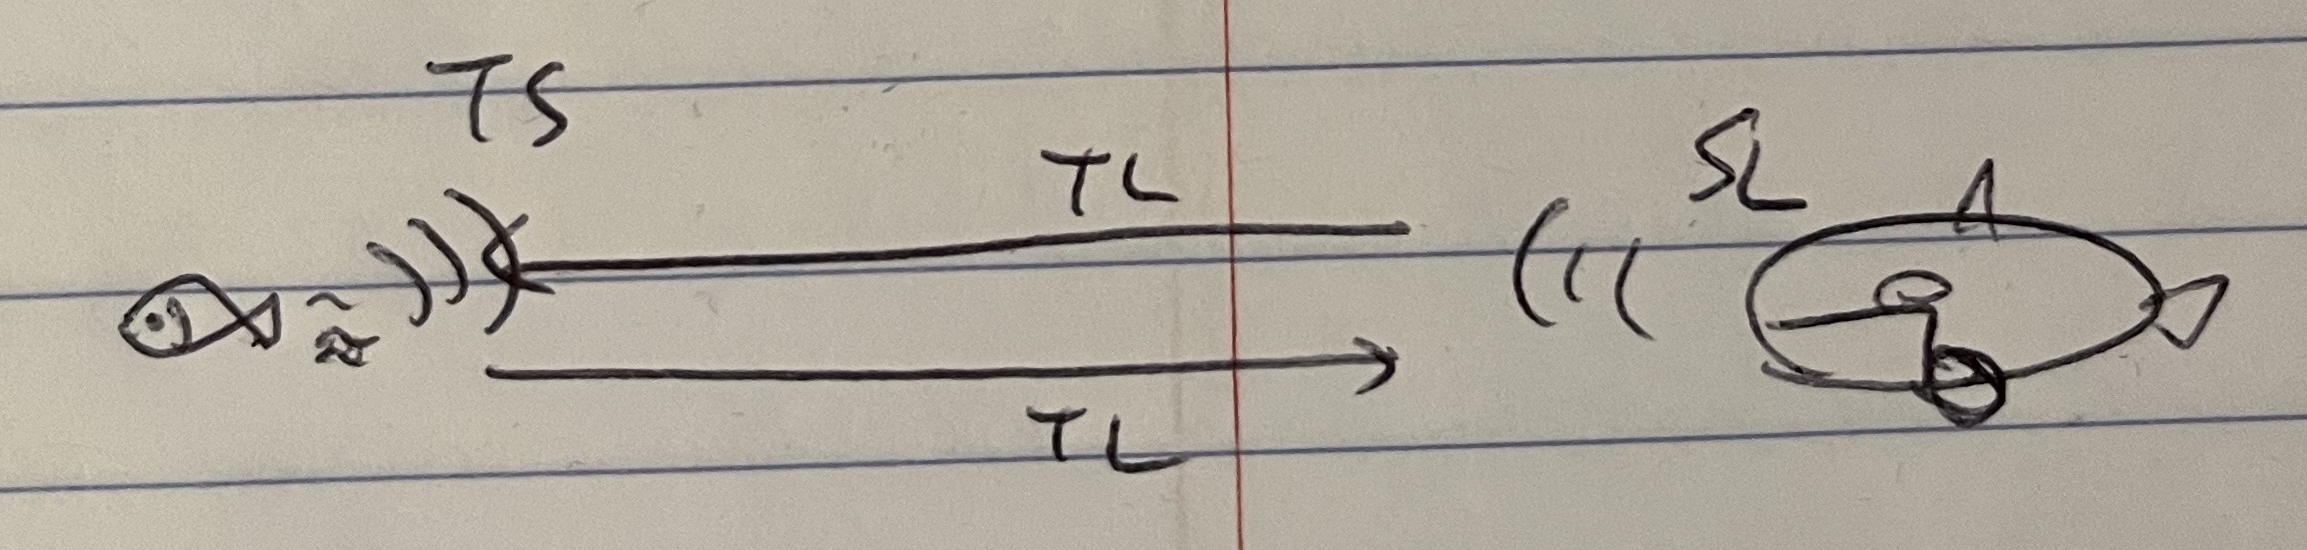 TS
TL
SL
TL